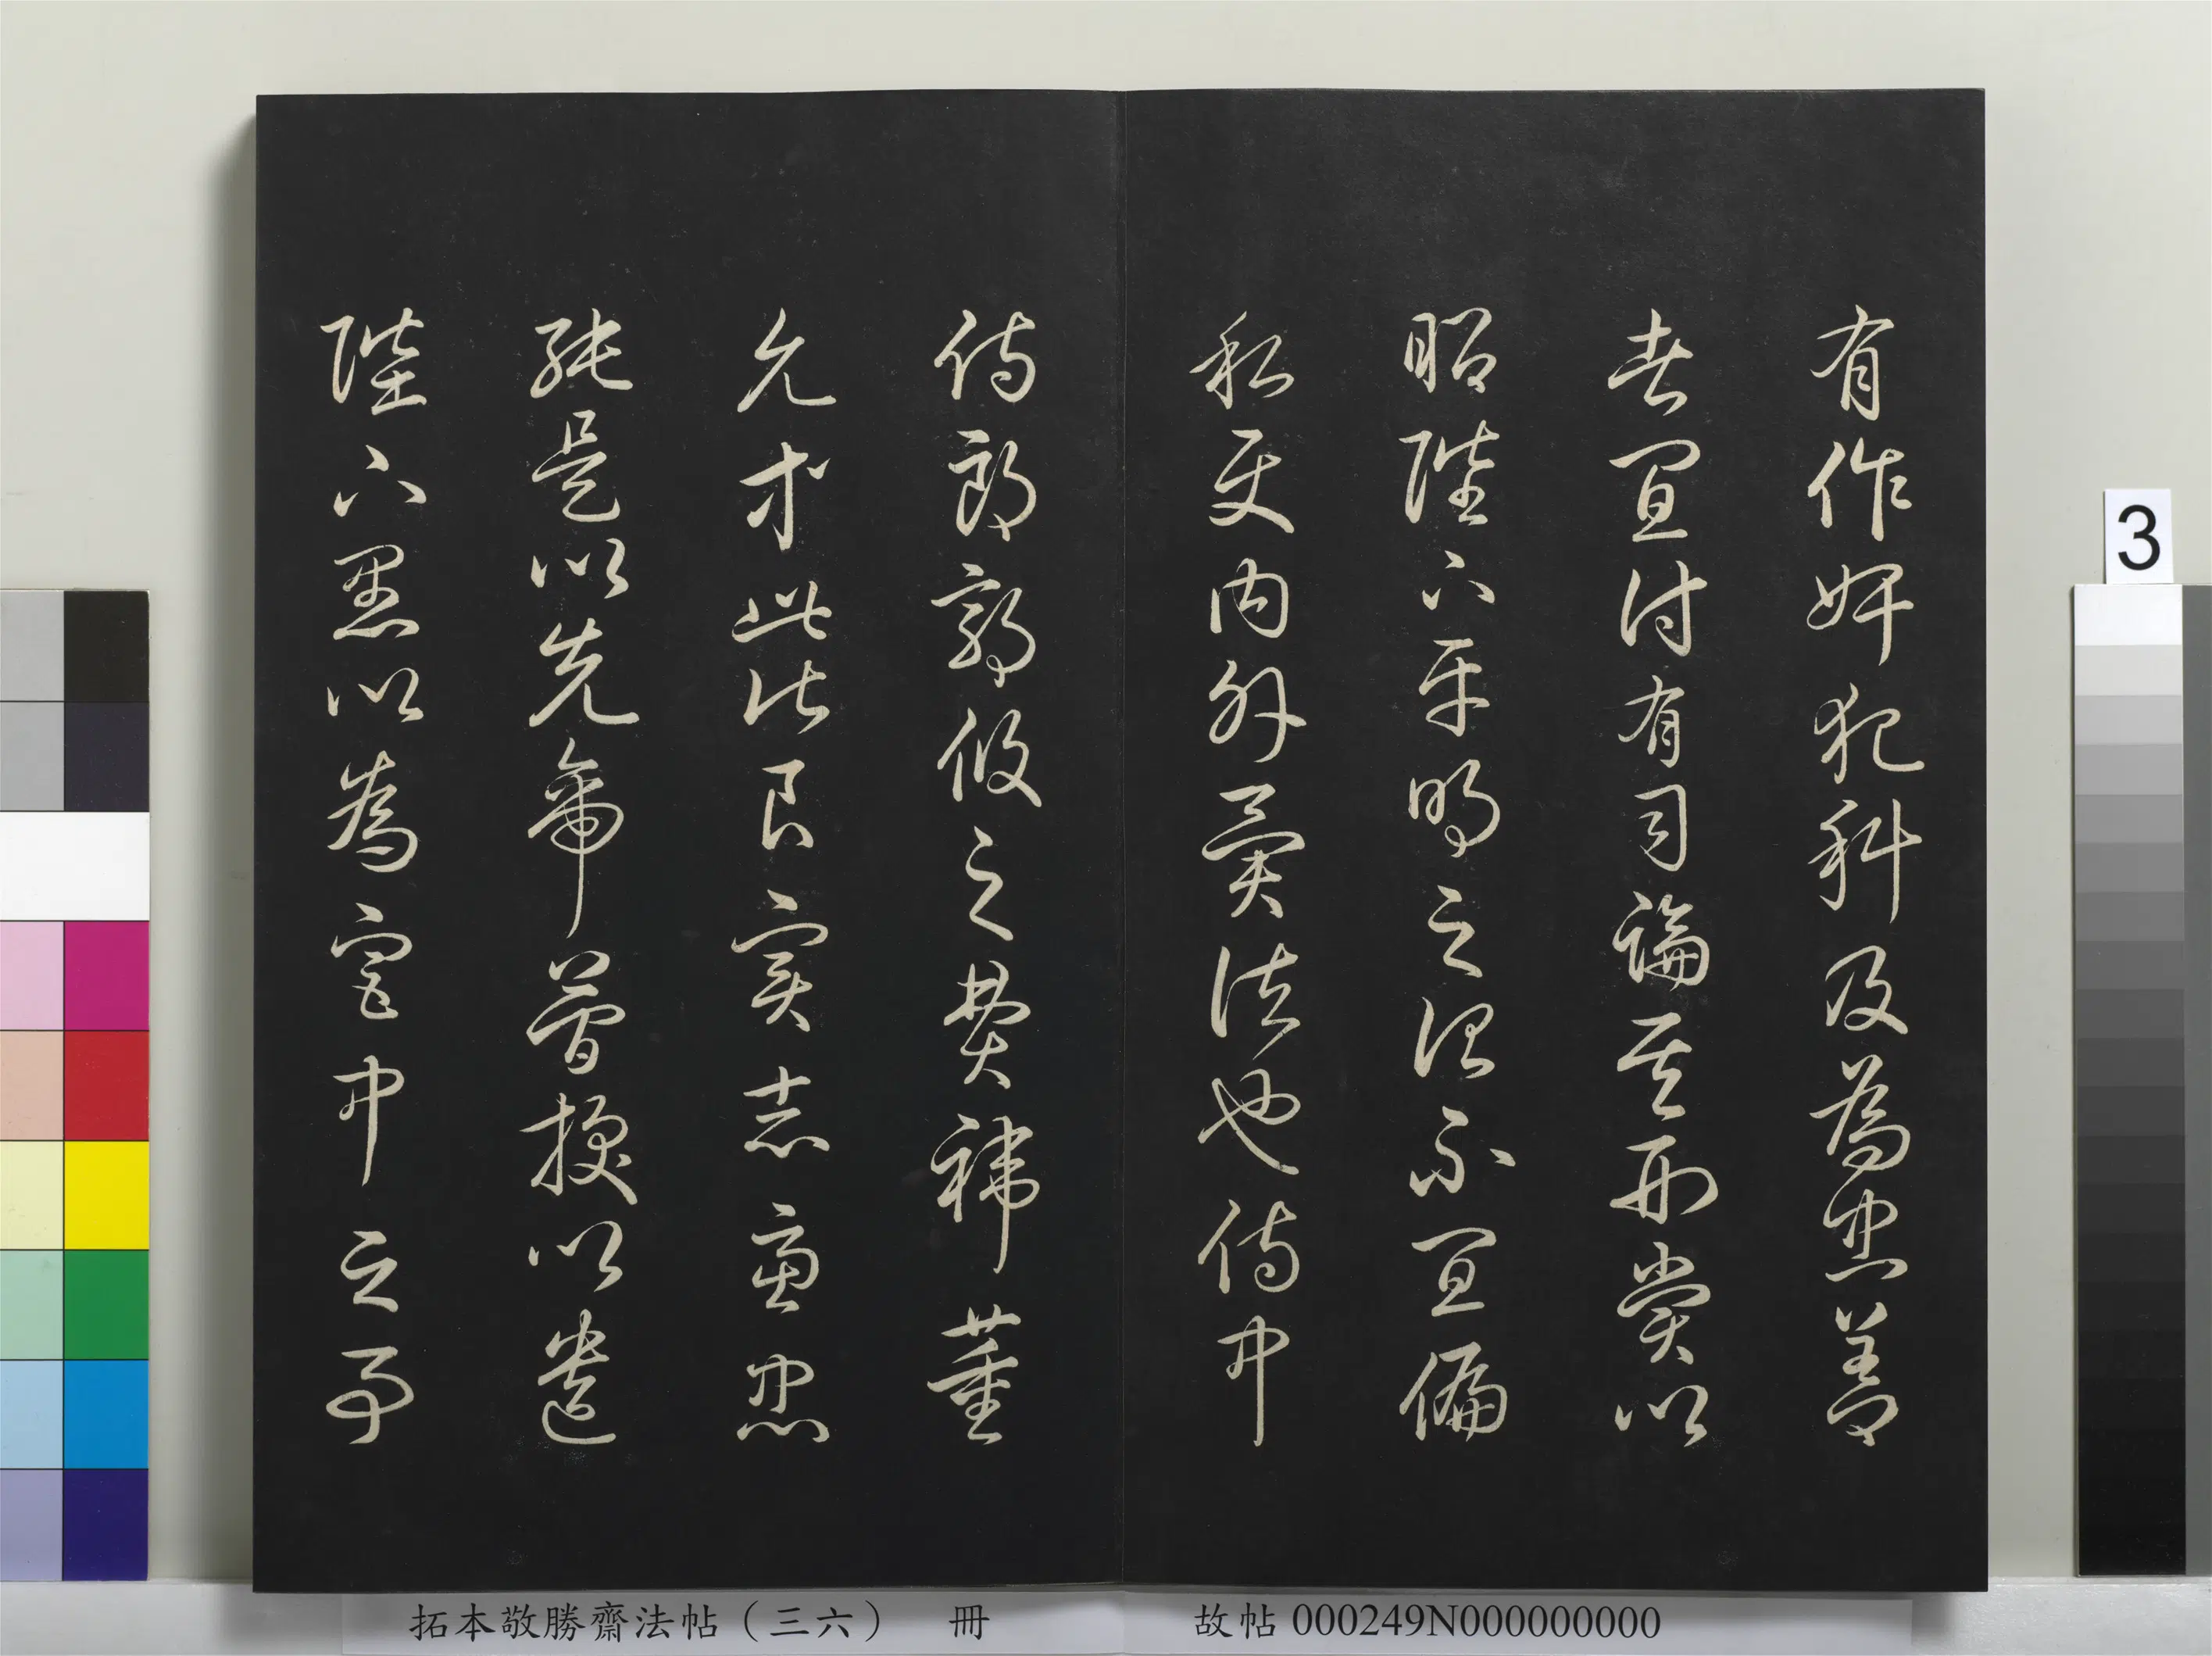 有作奸犯科及為忠善
者宜付有司論其刑賞以
昭陛下平明之治不宜偏
私使内外異法也侍中
侍郎郭攸之費禕董
允等此皆良實志慮忠
純是以先帝簡拔以遺
陛下愚以為宮中之事
3
拓本敬勝齋法帖（三六） 冊 故帖 000249N000000000